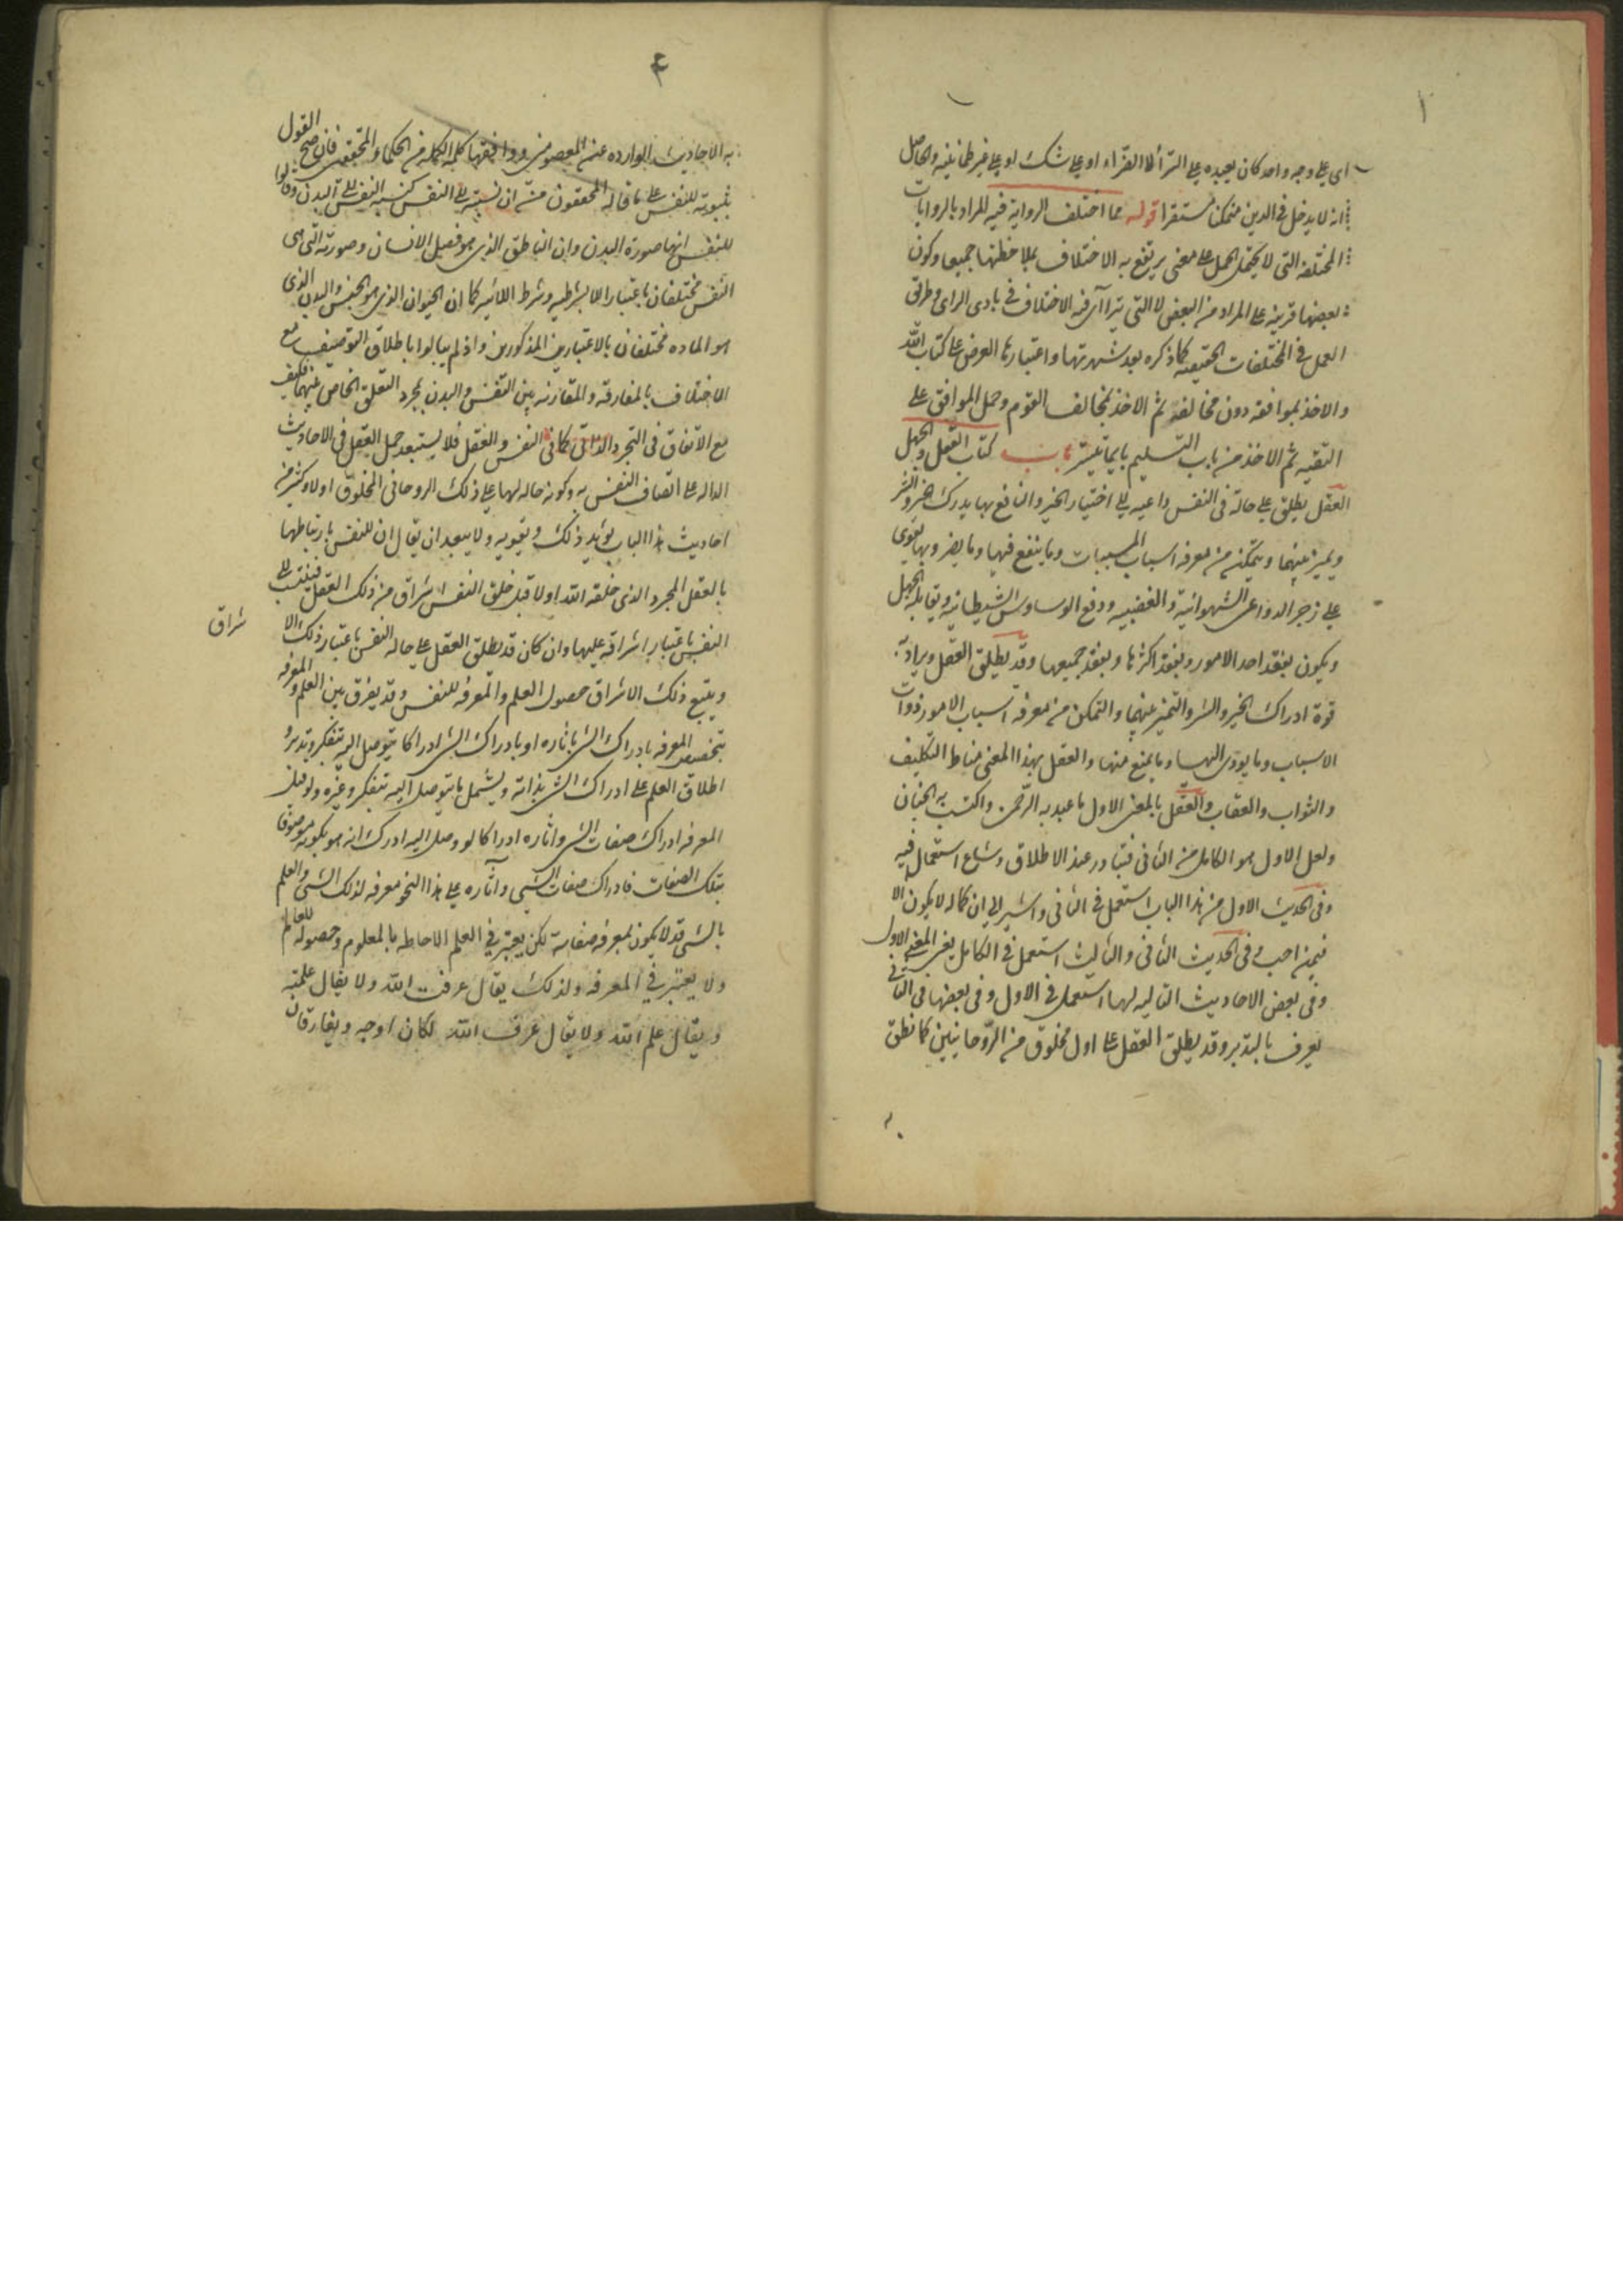 ١
اى على وجه واحد كان يعبده على السّرّاء لا الضرّاء او على شك او على غير طمانينه والحاصل
انه لا يدخل فى الدين متمكنا مستقرا قوله مما اختلف الرواية فيه المراد بالروايات
المختلفه التى لا يحتمل الحمل على معنى يرتفع به الاختلاف بملاحظتها جميعا وكون
بعضها قرينه على المراد من البعض لا التى يتراآى فيه الاختلاف فى بادى الراى وطرق
العمل فى المختلفات الحقيقيه كما ذكره بعد شهرتها واعتبارها العرض على كتاب الله
والاخذ بموافقه دون مخالفه ثم الاخذ بمخالف القوم وحمل الموافق على
التقيه ثم الاخذ من باب التسليم بايها تيسّر باب كتاب العقل والجهل
العقل يطلق على حالة فى النفس داعيه الى اختيار الخير والنافع بها يدرك الخير والشر
ويميز بينهما ويتمكن من معرفه اسباب المسببات وما ينفع فيها وما يضر وبها يقوى
على زجر الدواعى الشهوانية والغضبيه ودفع الوساوس الشيطانيه ويقابله الجهل
ويكون بفقد احد الامور وبفقد اكثرها وبفقد جميعها وقد يطلق العقل ويراد به
قوة ادراك الخير والشر والتميز بينهما والتمكن من معرفة اسباب الامور ذوات
الاسباب وما يؤدى اليها وما يمنع منها والعقل بهذا المعنى مناط التكليف
والثواب والعقاب والعقل بالمعنى الاول ما عبد به الرّحمن واكتسب به الجنان
ولعل الاول هو الكامل من الثانى فتبادر عند الاطلاق وشاع استعماله فيه
وفى الحديث الاول من هذا الباب استعمل فى الثانى واشير الى ان كماله لا يكون الا
فيمن احب وفى الحديث الثانى والثالث استعمل فى الكامل يعنى المعنى الاول
وفى بعض الاحاديث التاليه لهما استعمل فى الاول وفى بعضها فى الثانى
يعرف بالتدبر وقد يطلق العقل على اول مخلوق من الرّوحانيين كما نطق
٤
به الاحاديث الوارده عن المعصومين ووافقها كلمة الكمله من الحكماء المحققين فان صح القول
بثبوته للنفس على ما قاله المحققون من ان نسبته الى النفس كنسبة النفس الى البدن وقالوا
للنفس انها صورة البدن وان الناطق الذى هو فصل الانسان وصورته التى هى
النفس مختلفان باعتبار اللابشرطيه وشرط اللائيه كما ان الحيوان الذى هو الجنس والبدن الذى
هو الماده مختلفان بالاعتبارين المذكورين واذ لم يبالوا باطلاق التوصيف مع
الاختلاف بالمفارقه والمقارنه بين النفس والبدن بمجرد التعلق الخاص بينهما فكيف
مع الاتفاق فى التجرد الذاتى كما فى النفس والعقل فلا يستبعد حمل العقل فى الاحاديث
الداله على اتصاف النفس به وكونه حاله لها على ذلك الروحانى المخلوق اولا وكثير من
احاديث هذا الباب يؤيد ذلك ويقويه ولا يبعد ان يقال ان للنفس بارتباطها
بالعقل المجرد الذى خلقه الله اولا قبل خلق النفس اشراق من ذلك العقل فينسب الى
النفس باعتبار اشراقه عليها وان كان قد يطلق العقل على حاله النفس باعتبار ذلك الا
شراق
ويتبع ذلك الاشراق حصول العلم والمعرفه للنفس وقد يفرق بين العلم والمعرفه
بتخصيص المعرفه بادراك الشئ باثاره او بادراك الشئ ادراكا يتوصل اليه بتفكر وتدبر و
اطلاق العلم على ادراك الشئ بذاته ويشمل ما يتوصل اليه بتفكر وغيره ولو قيل
المعرفه ادراك صفات الشئ واثاره ادراكا لو وصل اليه ادرك انه هو بكونه موصوفا
بتلك الصفات فادراك صفات الشئ وآثاره على هذا النحو معرفه لذلك الشئ والعلم
بالشئ قد لا يكون بمعرفه صفاته لكن يعتبر فى العلم الاحاطه بالمعلوم وحصوله للعالم
ولا يعتبر فى المعرفه ولذلك يقال عرفت الله ولا يقال علمته
ويقال علم الله ولا يقال عرف الله لكان اوجه ويفارقان